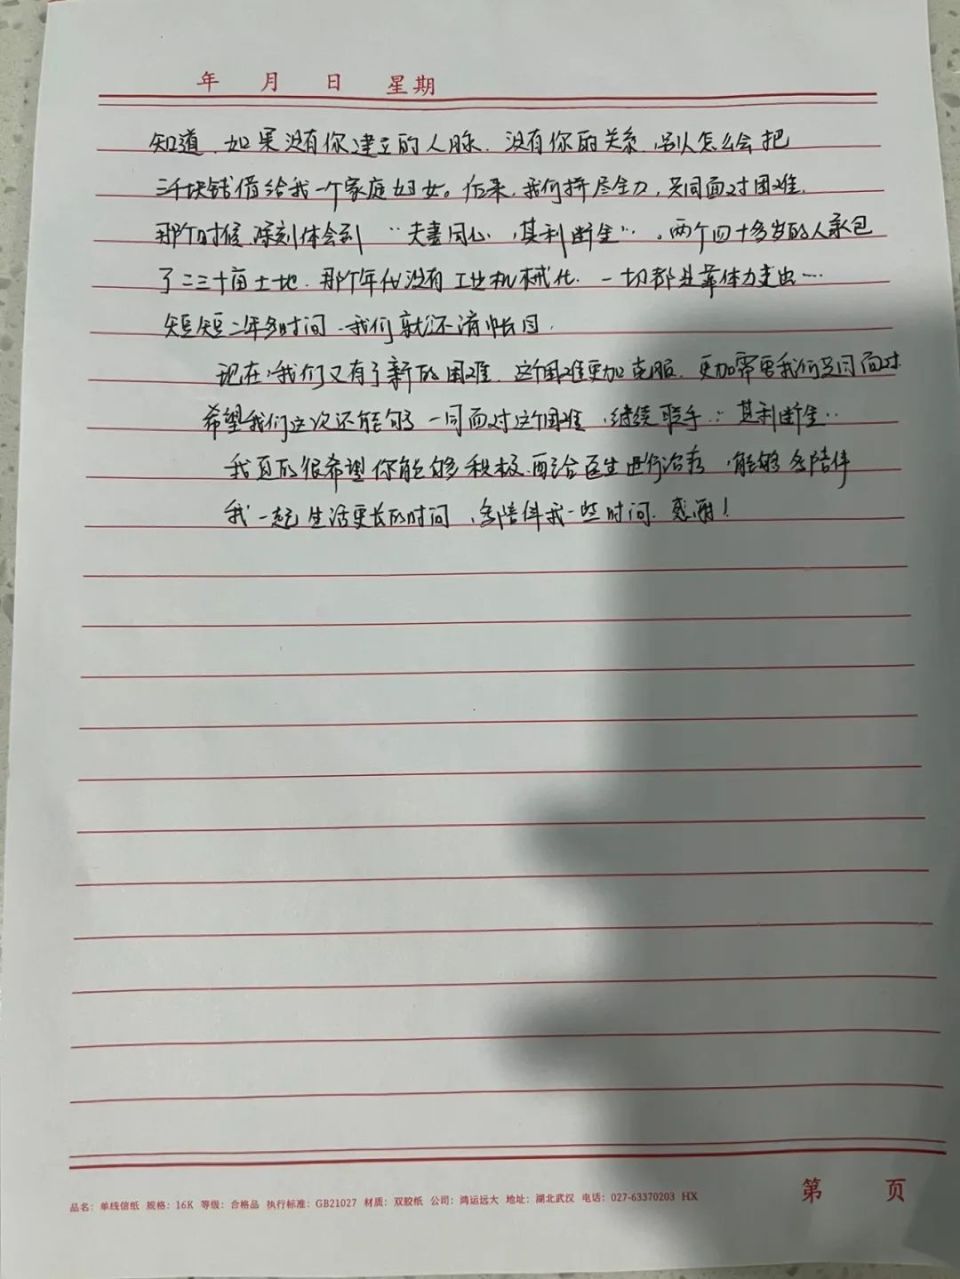 年 月 日 星期
知道,如果没有你建立的人脉,没有你的关系,别人怎么会把
三千块钱借给我一个家庭妇女。后来,我们拼尽全力,共同面对困难.
那个时候深刻体会到“夫妻同心,其利断金”,两个四十多岁的人承包
了二三十亩土地,那个年代没有工业机械化,一切都是靠体力支出…
短短二年多时间,我们就还清帐目.
现在,我们又有了新的困难,这个困难更加克服,更加需要我们共同面对
希望我们这次还能够一同面对这个困难,继续联手,其利断金..
我真的很希望你能够积极配合医生进行治疗,能够多陪伴
我一起生活更长的时间,多陪伴我一些时间.感谢!
品名:单线信纸 规格:16K 等级:合格品 执行标准:GB21027 材质:双胶纸 公司:鸿运远大 地址:湖北武汉 电话:027-63370203 HX
第 页